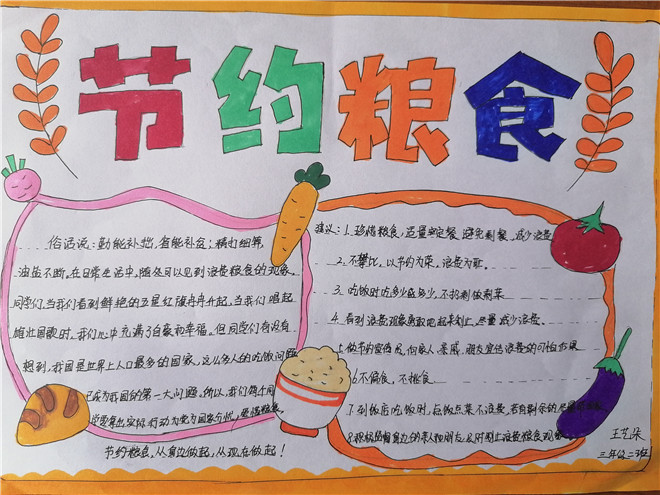 节约粮食
俗话说：勤能补拙，省能补贫；精打细算，
油盐不断。在日常生活中，随处可以见到浪费粮食的现象。
同学们，当我们看到鲜艳的五星红旗冉冉升起，当我们唱起
雄壮国歌时，我们心中充满了自豪和幸福。但同学们有没有
想到，我国是世界上人口最多的国家，这么多人的吃饭问题
已成为我国的第一大问题。所以，我们每个同
学要拿出实际行动为党为国家分忧，爱惜粮食。
节约粮食，从身边做起，从现在做起！
建议：1.珍惜粮食，适量定餐，避免剩餐，减少浪费
2.不攀比，以节约为荣，浪费为耻。
3.吃饭时吃多少盛多少，不扔剩饭剩菜
4.看到浪费现象勇敢地起来制止，尽量减少浪费。
5.做节约宣传员，向家人、亲戚、朋友宣传浪费的可怕后果
6.不偏食，不挑食。
7.到饭店吃饭时，点饭点菜不浪费，若有剩余的尽量
8.积极监督身边的亲人和朋友，及时制止浪费粮食现象
王艺朵
三年级二班